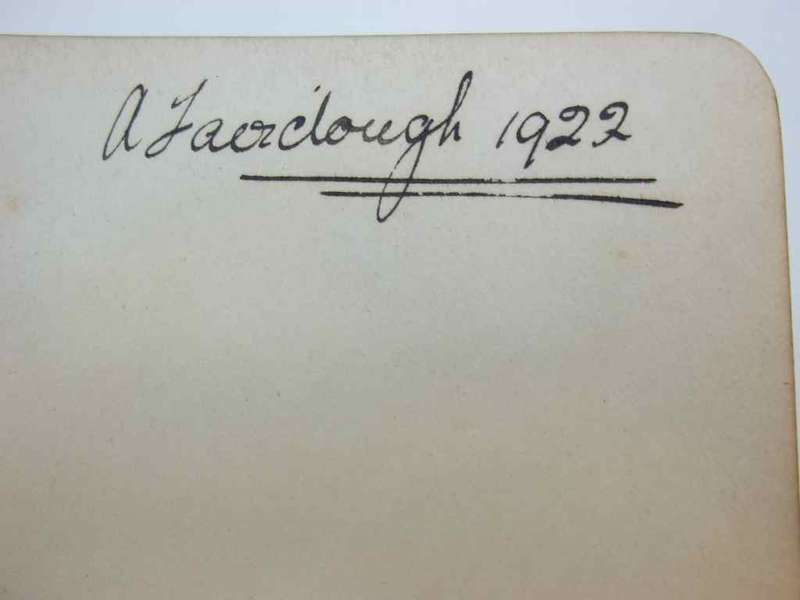 A Fairclough 1922